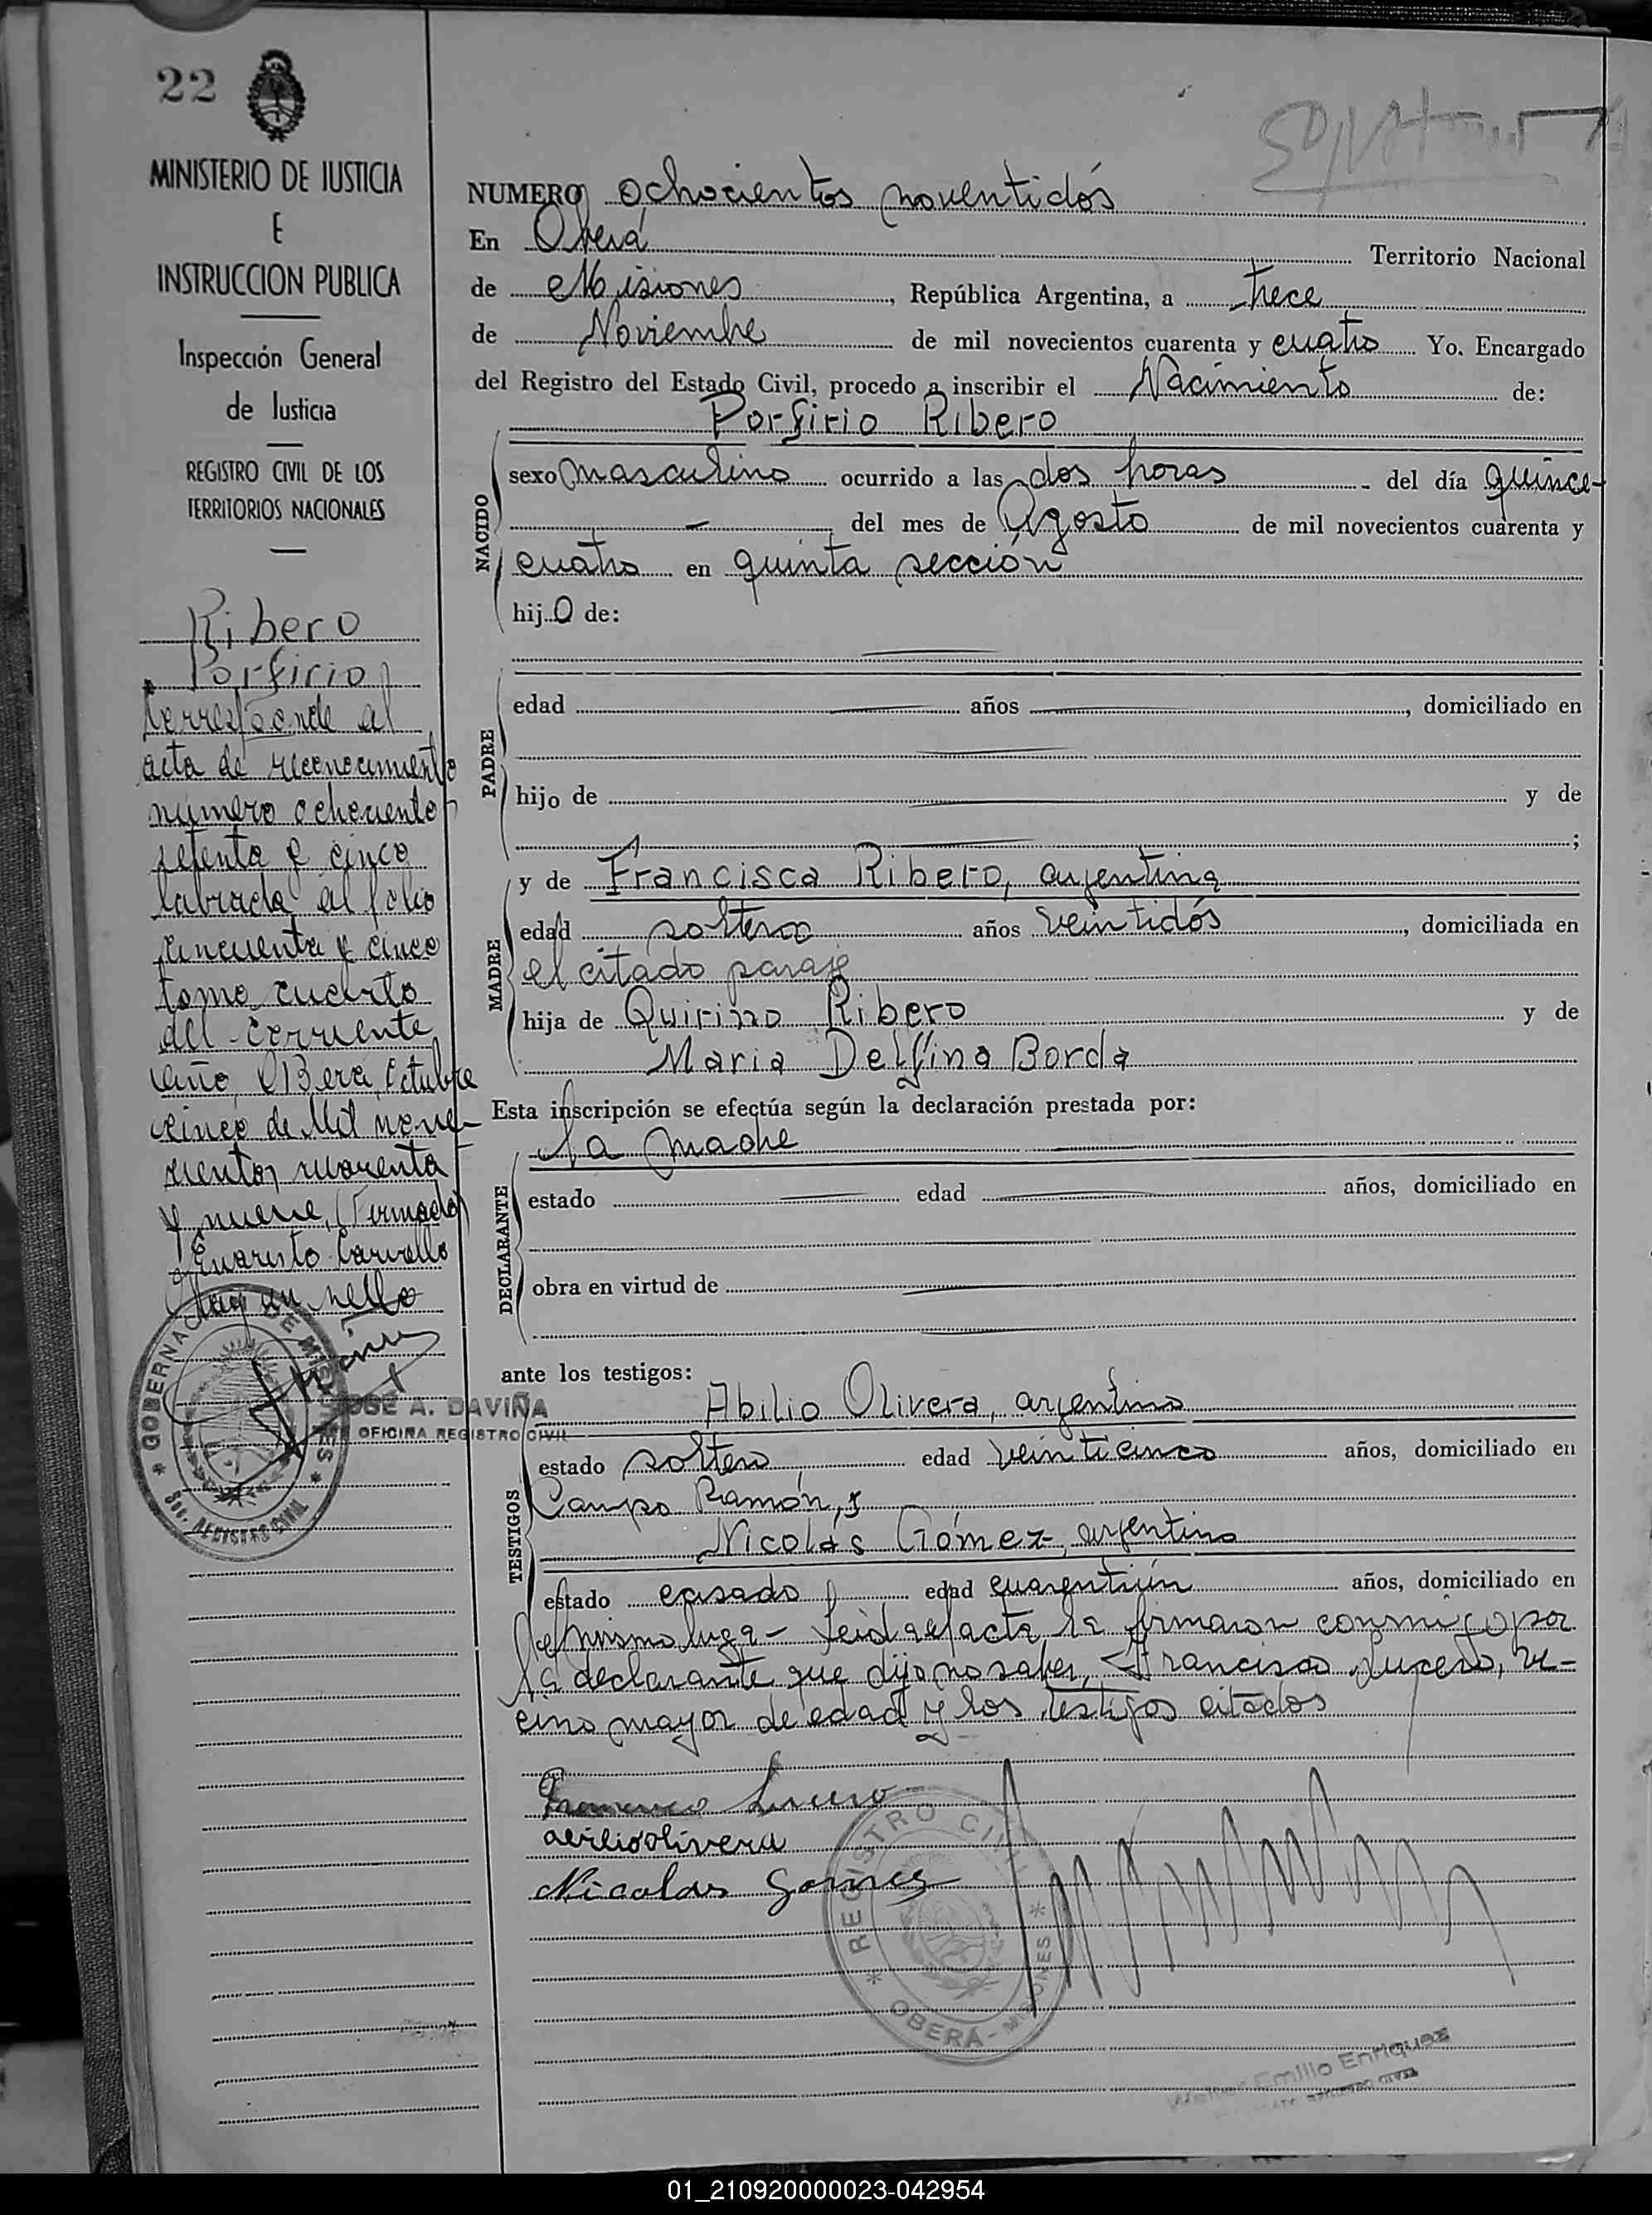 22
MINISTERIO DE JUSTICIA
E
INSTRUCCION PUBLICA
Inspección General
de Justicia
REGISTRO CIVIL DE LOS
TERRITORIOS NACIONALES
Ribero
Porfirio
Corresponde al
acta de reconocimiento
número ochociento
setenta y cinco
labrada al folio
cincuenta y cinco
tomo cuarto
del corriente
año, Oberá, Octubre
cinco de Mil nove-
cientos cuarenta
y nueve, (Firmado)
Evaristo Carvallo
Hay un sello
GOBERNAC DE MISIONES
Sec. REGISTRO CIVIL
JOSE A. DAVIÑA
OFICINA REGISTRO CIVIL
NUMERO ochocientos noventidós
En Oberá Territorio Nacional
de Misiones, República Argentina, a trece
de Noviembre de mil novecientos cuarenta y cuatro Yo. Encargado
del Registro del Estado Civil, procedo a inscribir el Nacimiento de:
Porfirio Ribero
NACIDO
sexo masculino ocurrido a las dos horas - del día quince-
- del mes de Agosto de mil novecientos cuarenta y
cuatro en quinta sección
hijo de:
PADRE
edad años, domiciliado en
hijo de y de
;
MADRE
y de Francisca Ribero, argentina
edad soltera años veintidós, domiciliada en
el citado paraje
hija de Quirino Ribero y de
Maria Delfina Borda
Esta inscripción se efectúa según la declaración prestada por:
la madre
DECLARANTE
estado edad años, domiciliado en
obra en virtud de
ante los testigos:
TESTIGOS
Abilio Olivera, argentino
estado soltero, edad veinticinco años, domiciliado en
Campo Ramón, y
Nicolás Gómez, argentino
estado casado edad cuarentiún años, domiciliado en
el mismo lugar- Leida el acta, la firmaron conmigo por
la declarante que dijo no saber, Francisco Lucero, ve-
cino mayor de edad y los testigos citados
Francisco Lucero
avilio olivera
Nicolas Gomez
REGISTRO CIVIL
OBERÁ - MISIONES
Emilio Enriquez
01_210920000023-042954